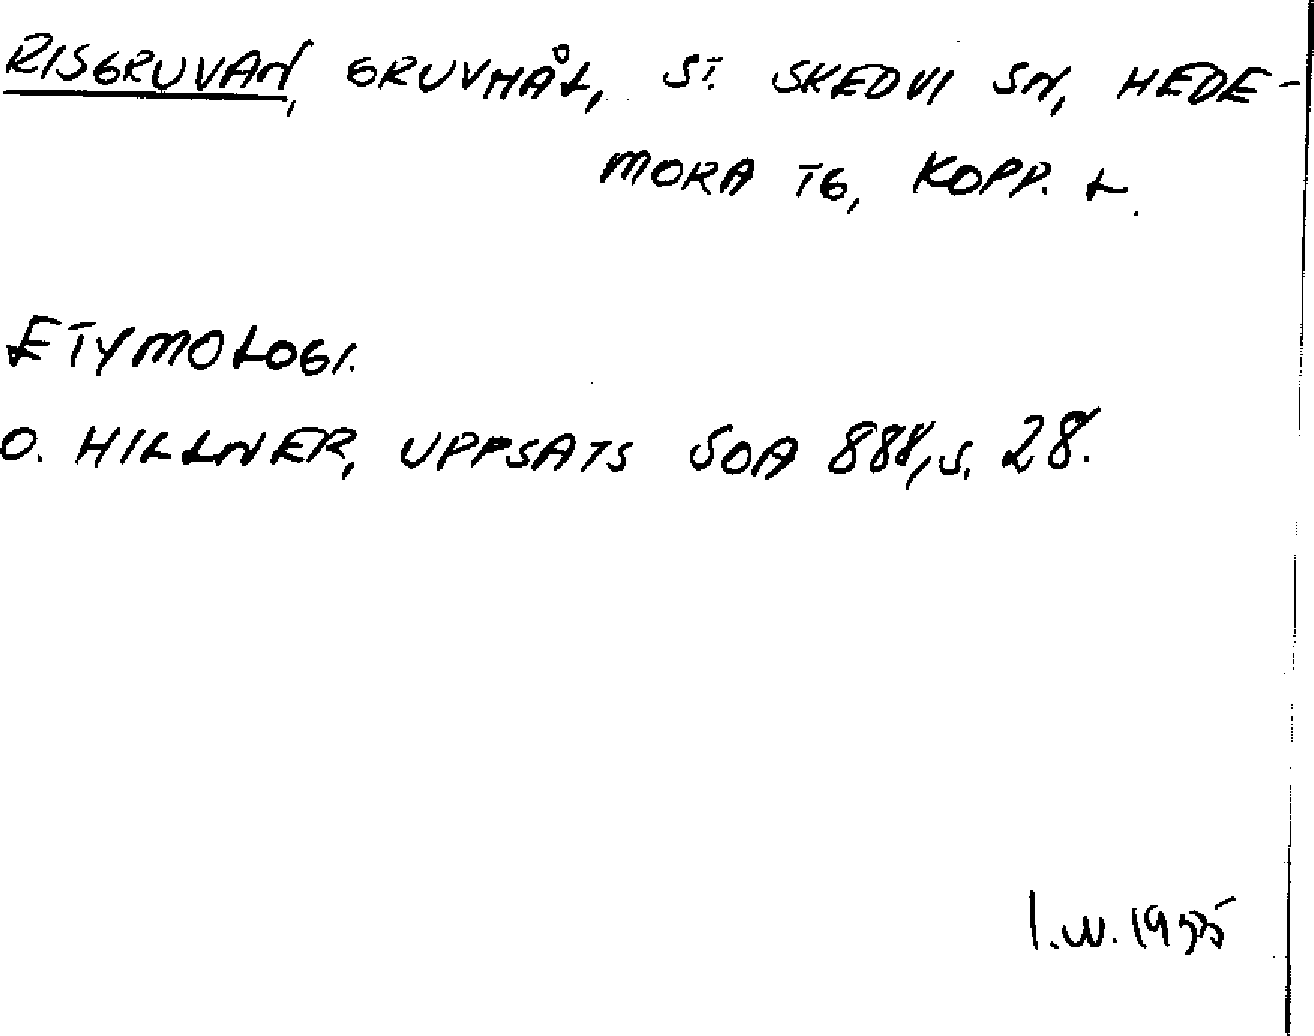 RISGRUVAN, GRUVHÅL, ST. SKEDVI SN, HEDE-
MORA TG, KOPP. L.
ETYMOLOGI.
O. HILLNER, UPPSATS SOA 888, S. 28.
I.W. 1935